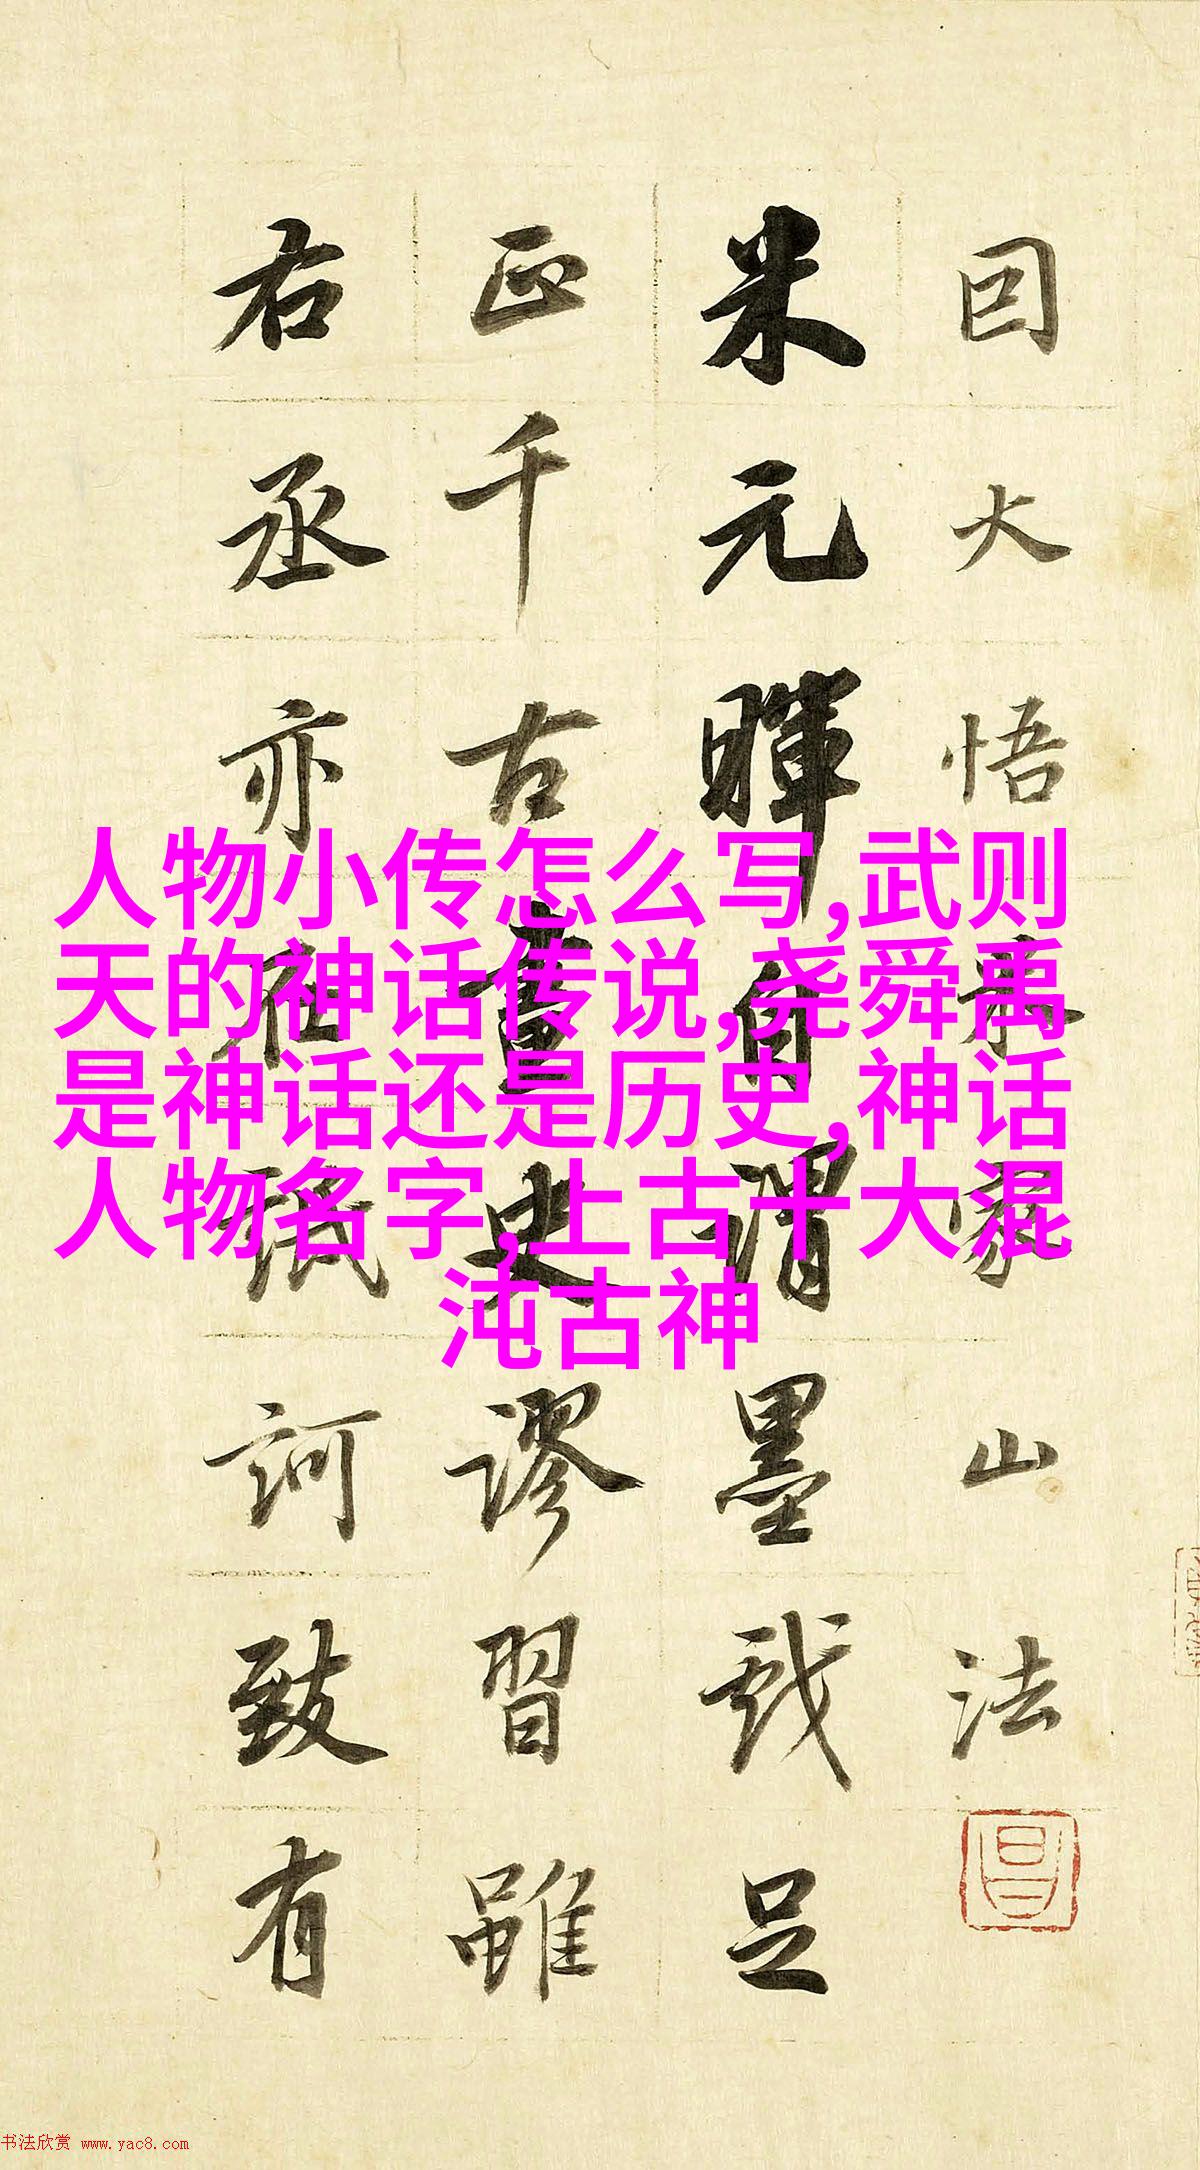 囙大悟米家山法
昌
米元暉自謂墨戲足
正千古畫史謬習雖
右丞亦在詆訶致有
人物小传怎么写,武则
天的神话传说,尧舜禹
是神话还是历史,神话
人物名字,上古十大混
沌古神
书法欣赏 www.yac8.com